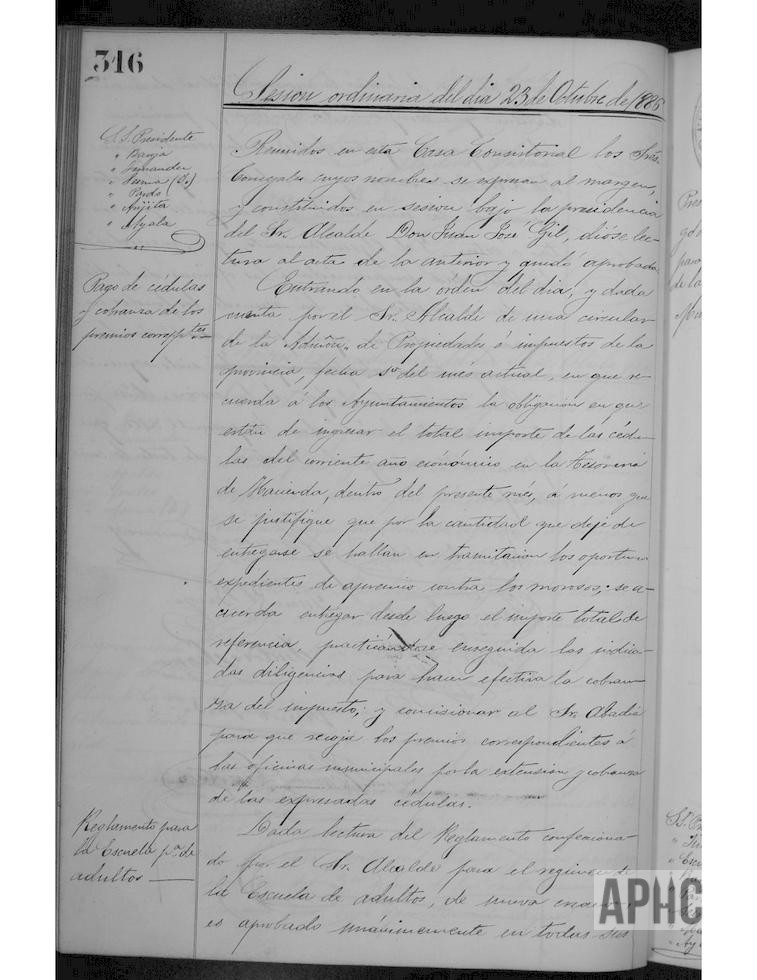 316
Sesion ordinaria del dia 23 de Octubre de 1886
S.S. Presidente
" Barja
" Fernandez
" (D.)
" Pardo
"
" Ayala
Reunidos en esta Casa Consistorial los Sres.
Concejales cuyos nombres se expresan al margen,
y constituidos en sesion bajo la presidencia
del Sr. Alcalde Don Juan José Gil, dióse lec-
tura al acta de la anterior y quedó aprobada.
Pago de cédulas
y cobranza de los
premios correspt.es
Entrando en la órden del dia, y dada
cuenta por el Sr. Alcalde de una circular
de la Admón. de Propiedades é impuestos de la
provincia, fecha del més actual, en que re-
cuerda á los Ayuntamientos la obligacion en que
están de ingresar el total importe de las cédu-
las del corriente año económico en la Tesoreria
de Hacienda, dentro del presente més, á menos que
se justifique que por la cantidad que deje de
entregarse se hallan en tramitacion los oportunos
expedientes de apremio contra los morosos; se a-
cuerda entregar desde luego el importe total de
referencia, practicandose enseguida las indica-
das diligencias para hacer efectiva la cobran-
za del impuesto; y comisionar al Sr. Abadia
para que recoja los premios correspondientes á
las oficinas municipales por la extension y cobranza
de las expresadas cédulas.
Reglamento para
la Escuela pa. de
adultos
Dada lectura del Reglamento confecciona-
do por el Sr. Alcalde para el regimen de
la Escuela de adultos, de nueva
es aprobado unánimemente en todas sus
APHC